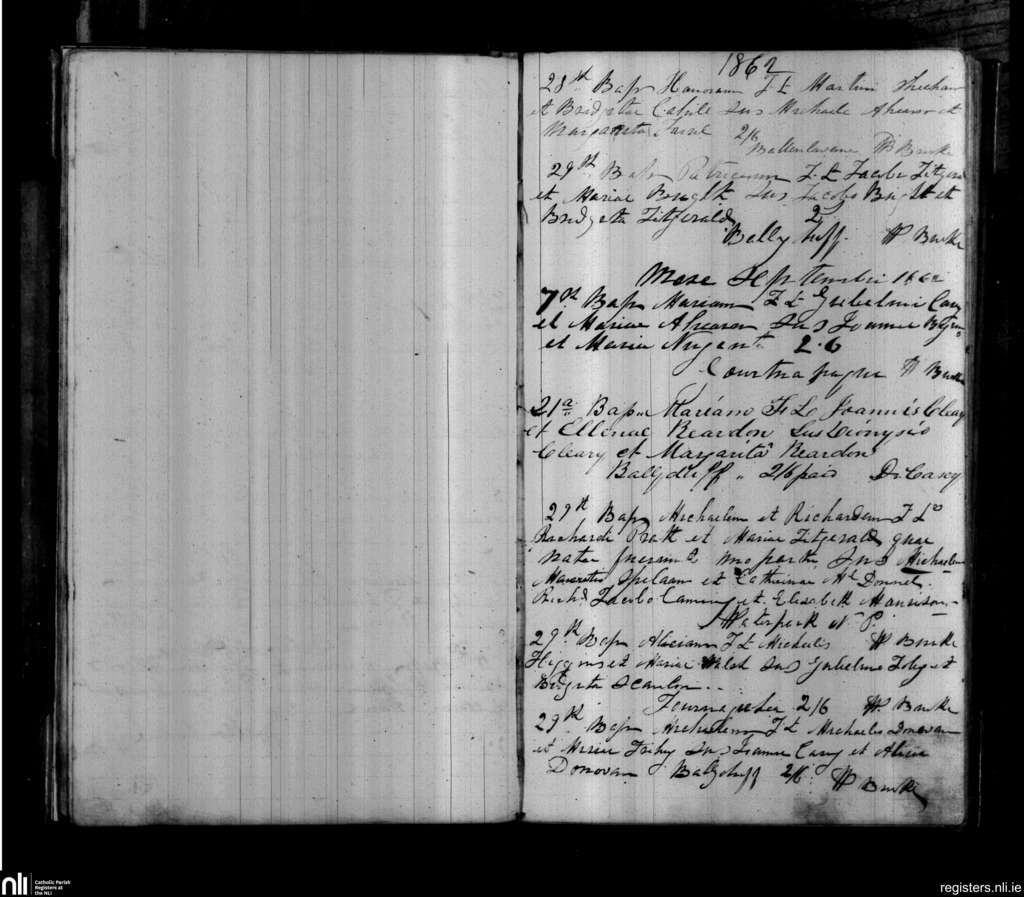 1862
28th Bap Honoram F L Martini Sheehan
et Bridgitae Cahile Sus Michaele Ahearn et
Margarita 2/6
W Burke
29th Bap Patricium F L Jacobi Fitzgerald
et Mariae Bright Sus Jacobo Bright et
Bridgeta Fitzgerald 2
Ballyduff W Burke
Mense Septembri 1862
7th Bap Mariam F L Gulielmi Cary
et Mariae Ahearn Sus Joanne
et Maria Nugent 2.6
Courtnapagur W Burke
21a Bap Mariano F L Joannis Cleary
et Ellenae Reardon Sus Dionysio
Cleary et Margarita Reardon
Ballyduff " 2/6 paid D. Casey
29th Bap Michaelem et Richardum F L
Richardi Pratt et Mariae Fitzgerald quae
natae fuerunt uno partu Sus Michaelem
Spelaan et Catherinae Mc Donnel.
Rich. Jacobo et Elisabeth Morrison
Waterpark N. P.
29th Bap Aliciam F L Michaelis W Burke
Higgins et Mariae Walsh Sus Gulielmo Foley et
Bridgeta Scanlon..
2/6 W Burke
29th Bap Michaelem F L Michaelis Donovan
et Mariae Fahey Sus Joanne Carey et Alicia
Donovan Ballyduff 2/6 W Burke
nli
Catholic Parish
Registers at
the NLI
registers.nli.ie